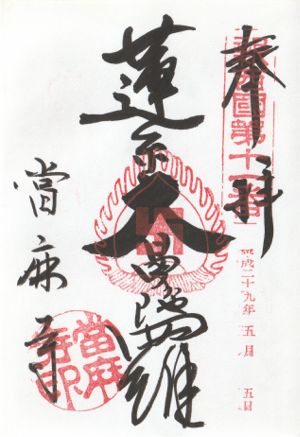 奉拝
新西國第十一番
平成二十九年 五月 五日
蓮糸大曼陀羅
當麻寺
當麻寺印